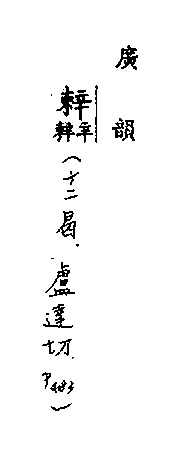 廣韻
(十二曷、盧達切 P483)